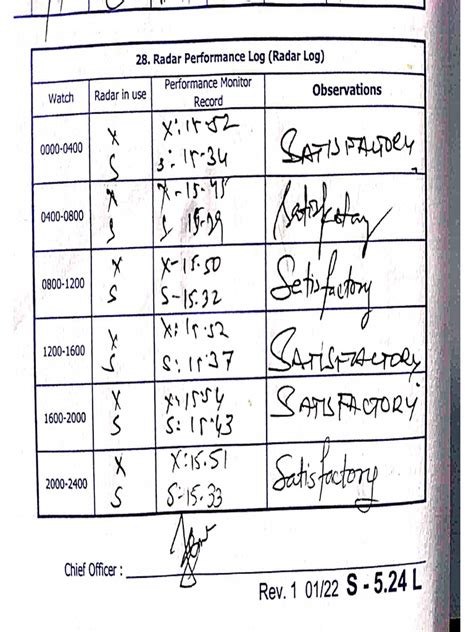 28. Radar Performance Log (Radar Log)
Watch Radar in use Performance Monitor Record Observations
0000-0400 X X: 15.52 SATISFACTORY.
S S: 15.34
0400-0800 X X-15.45 Satisfactory
S S 15.29
0800-1200 X X-15.50 Satisfactory
S S-15.32
1200-1600 X X: 15.52 SATISFACTORY
S S: 15.37
1600-2000 X X: 15.54 SATISFACTORY
S S: 15.43
2000-2400 X X:15.51 Satisfactory
S S-15.33
Chief Officer :
Rev. 1 01/22 S - 5.24 L